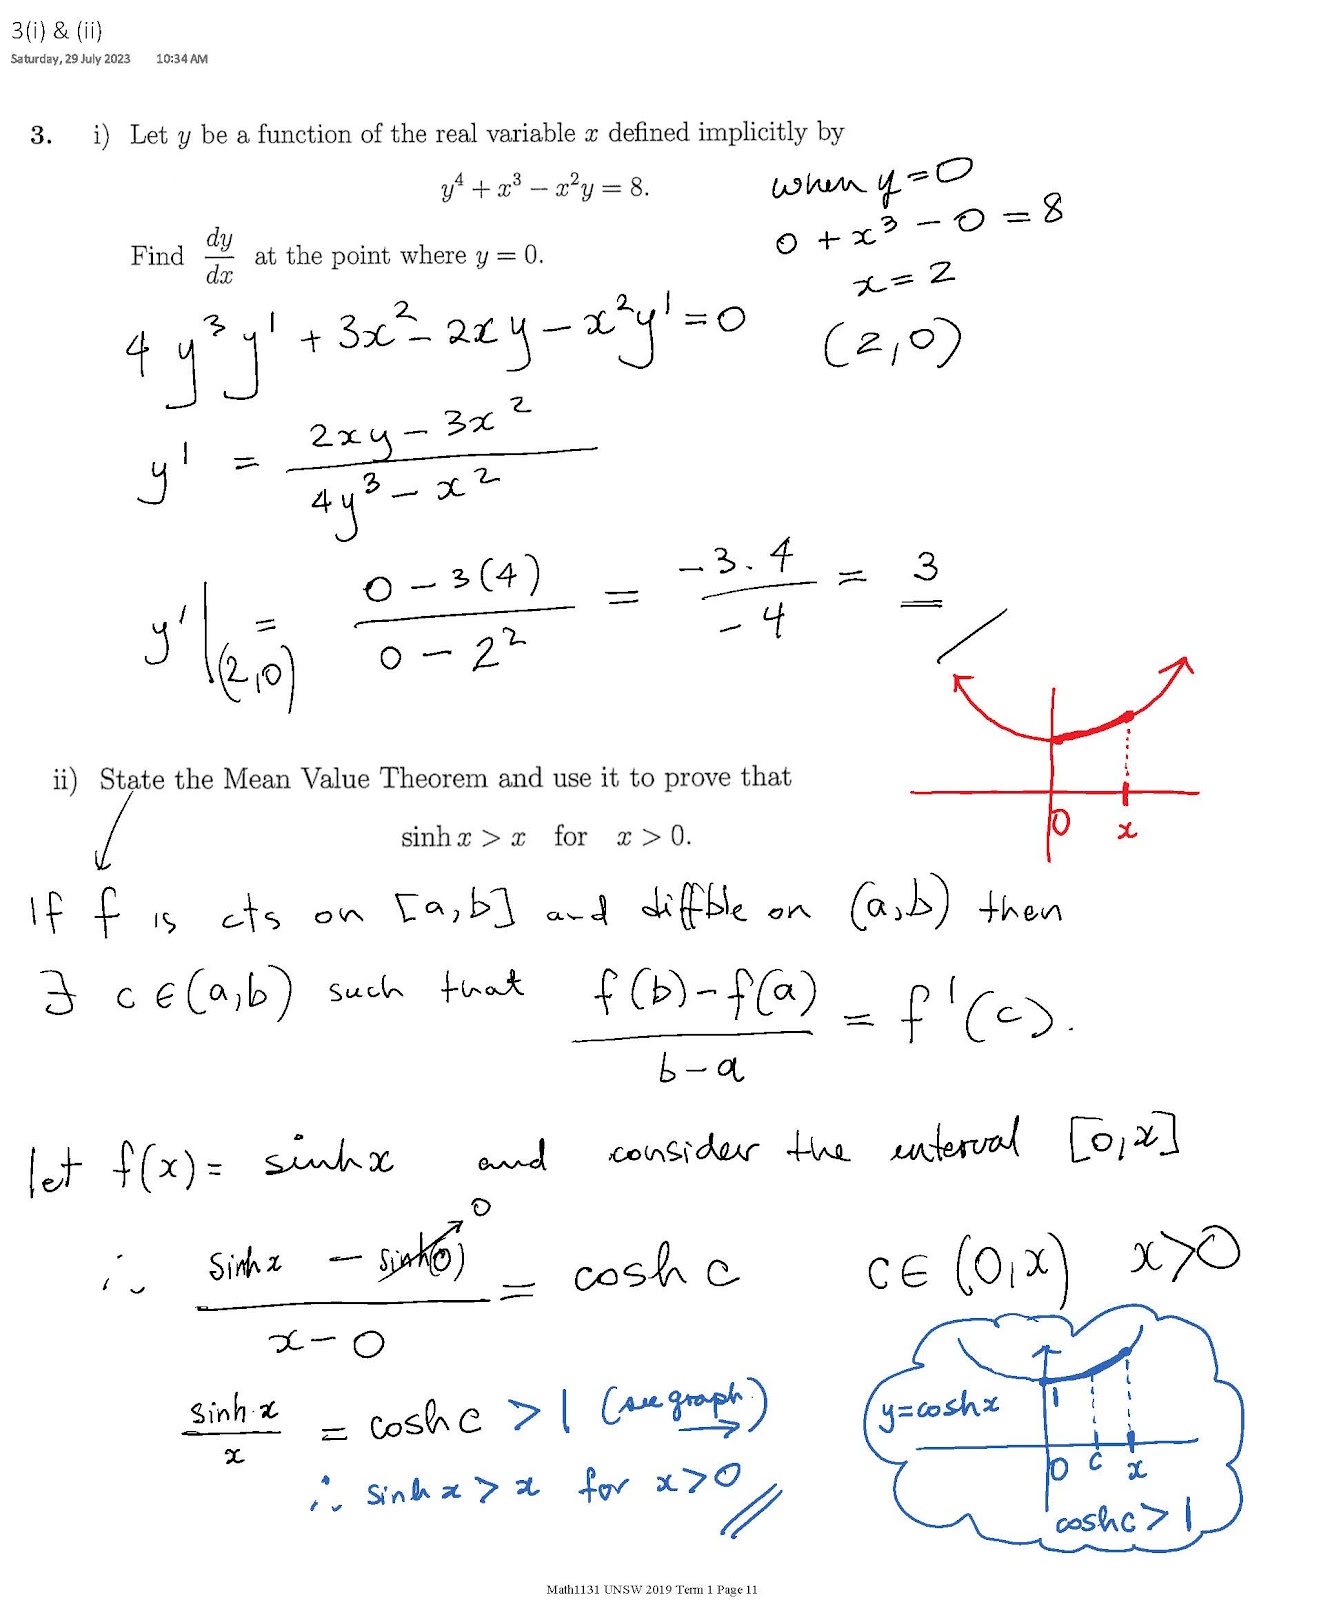 3(i) & (ii)
Saturday, 29 July 2023 10:34 AM
3. i) Let y be a function of the real variable x defined implicitly by
y⁴ + x³ − x²y = 8.
when y = 0
0 + x³ − 0 = 8
x = 2
(2,0)
Find dy/dx at the point where y = 0.
4y³y' + 3x² − 2xy − x²y' = 0
y' = (2xy − 3x²)/(4y³ − x²)
y'|(2,0) = (0 − 3(4))/(0 − 2²) = (−3.4)/(−4) = 3
0 x
ii) State the Mean Value Theorem and use it to prove that
sinh x > x for x > 0.
If f is cts on [a,b] and diffble on (a,b) then
∃ c ∈ (a,b) such that (f(b) − f(a))/(b − a) = f'(c).
let f(x) = sinhx and consider the interval [0,x]
∴ (sinhx − sinh(0))/(x − 0) = cosh c c ∈ (0,x) x>0
0
sinh x/x = cosh c > 1 (see graph)
∴ sinh x > x for x>0
y=coshx
1
0 c x
coshc > 1
Math1131 UNSW 2019 Term 1 Page 11